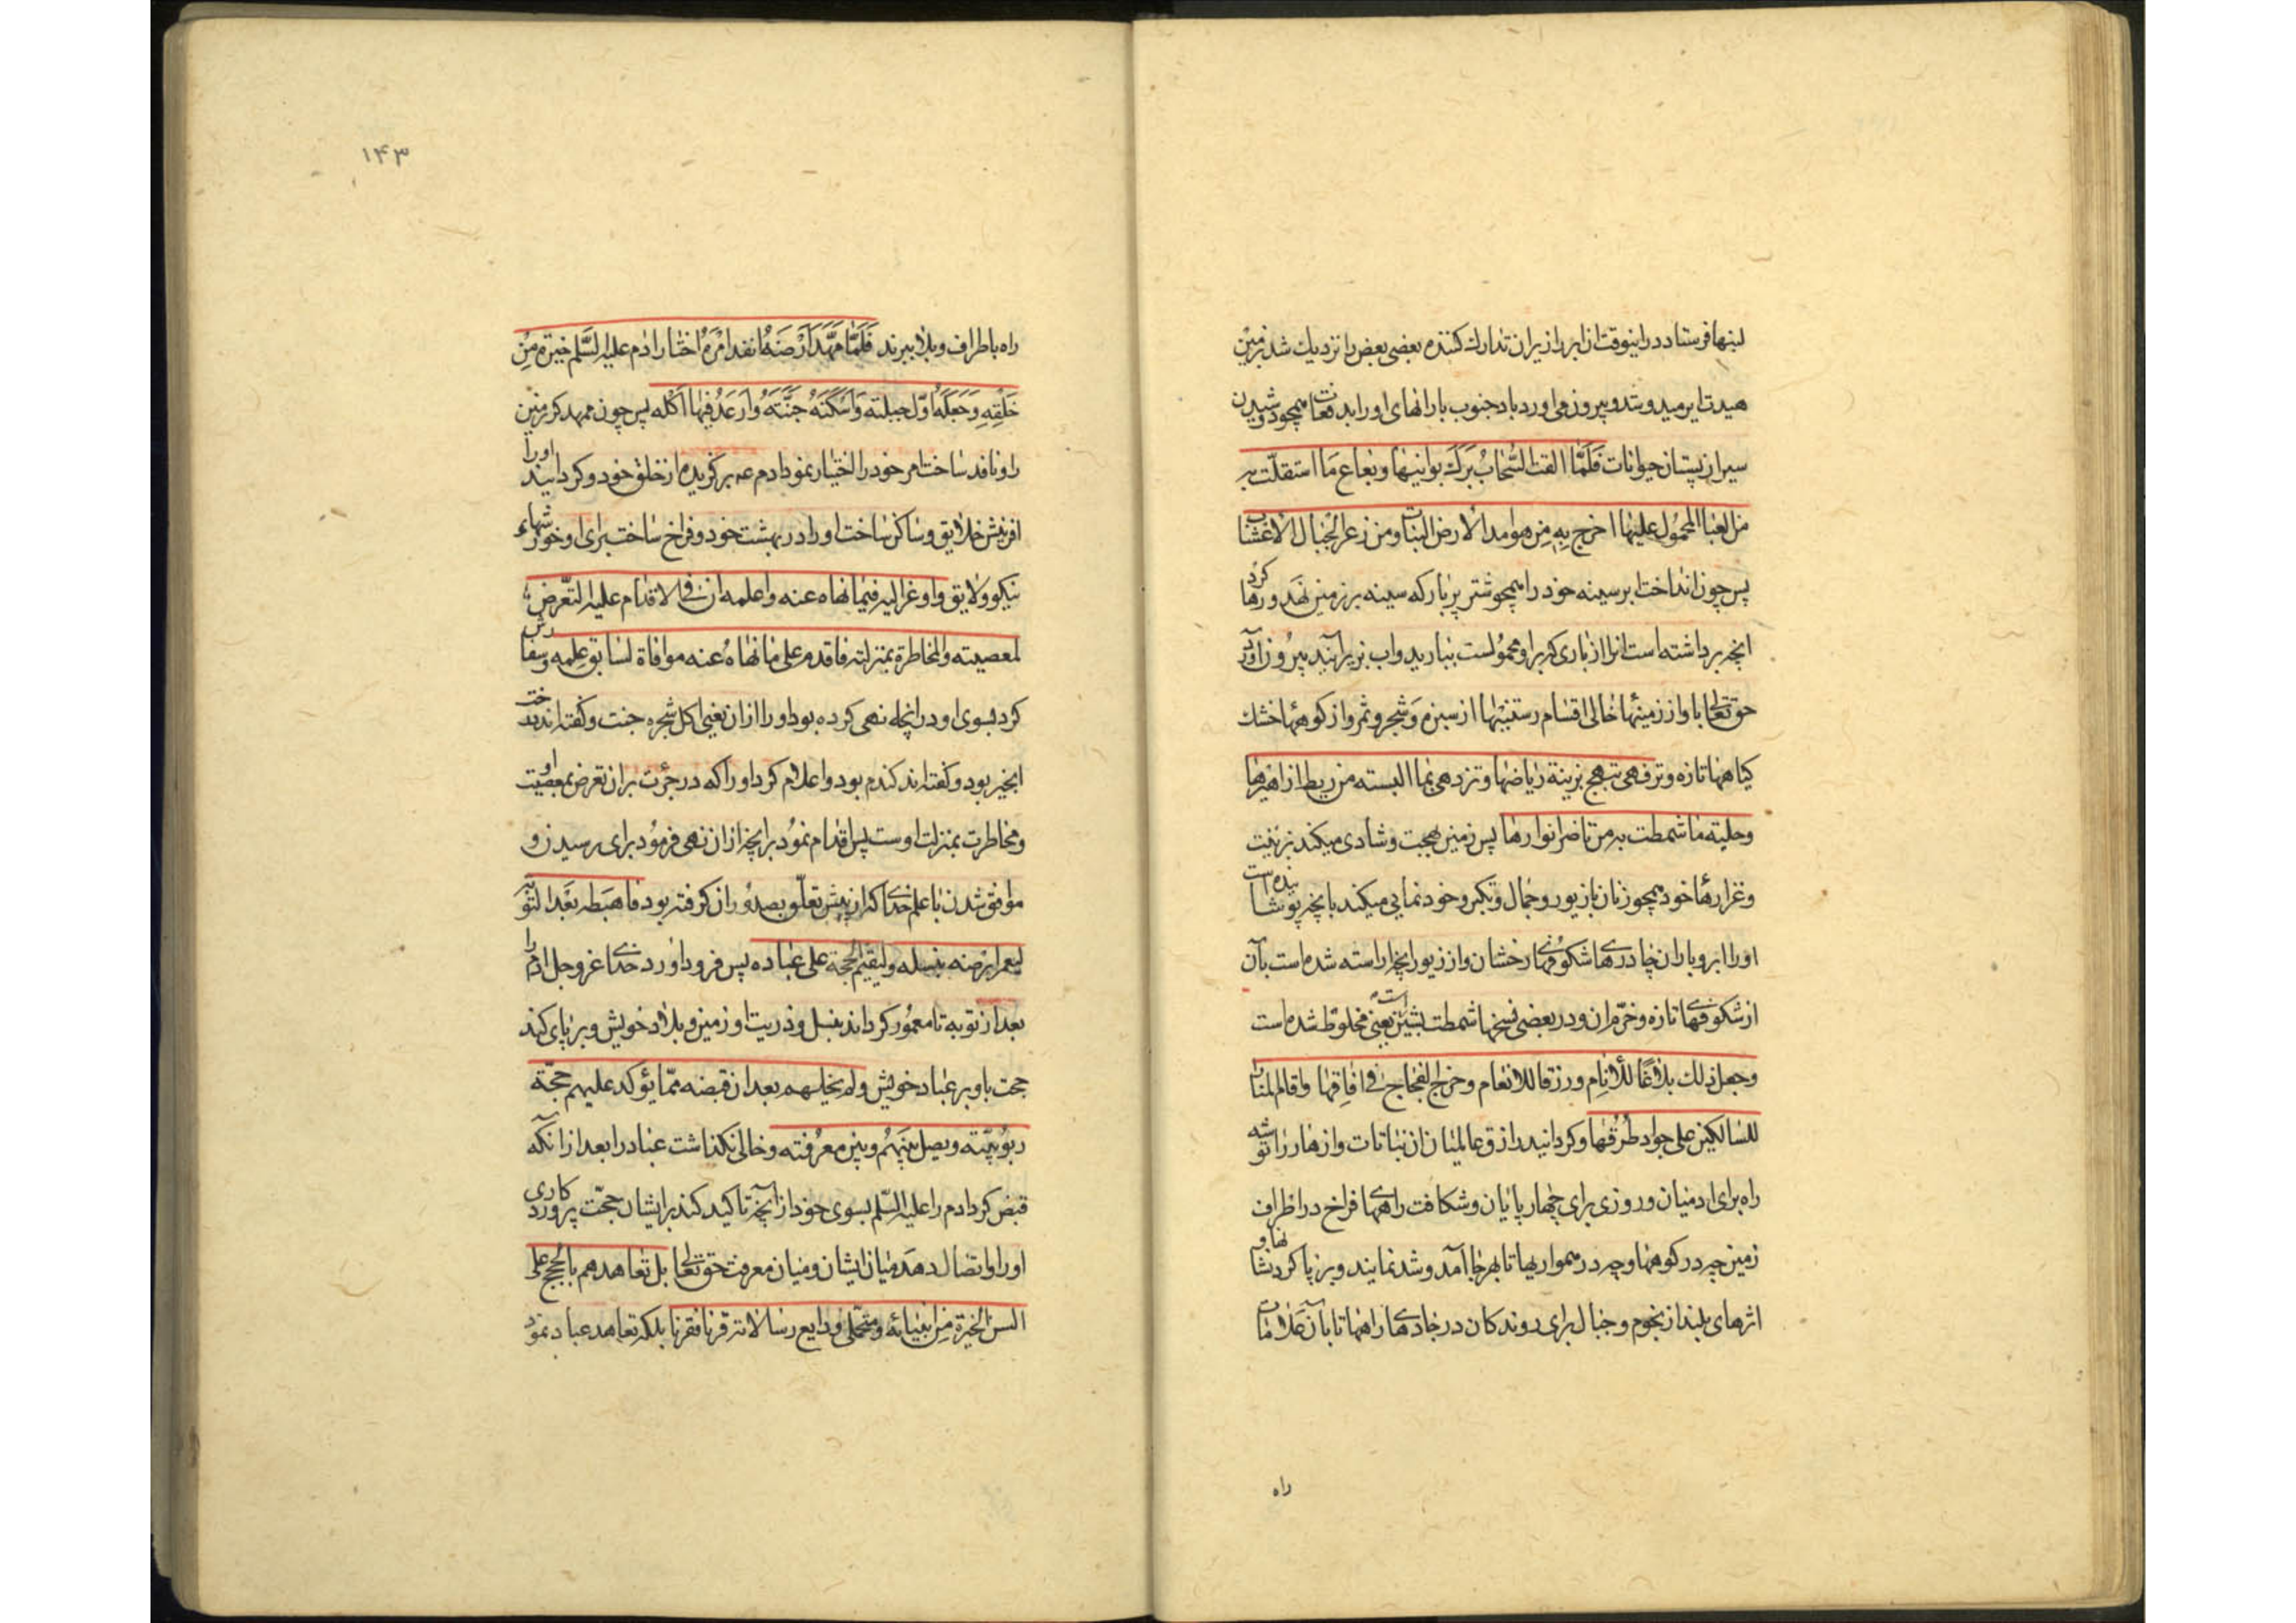 لبنها فرستاد در اینوقت از ابر از یران تدارک کننده بعضی بعض را نزدیک شد زمین
هیدت ایر میدوشد و بیرون می اورد باد جنوب بارانهای او را بدفعات همچو دوشیدن
سیران پستان حیوانات فَلَمّا القت السَّحابُ بَرَکَ بوانیها وبعاع مَا استقلّت به
من العبأ المحمُول علیها اخرج بِهِ مِن هوامد الارض النبات ومن زعر الجبال الاعشاب
پس چون انداخت ابر سینه خود را همچو شتر پر بار که سینه بر زمین نهد و رها کرد
انچه برداشته است انرا از باری که بر او محمولست ببارید و اب نزیرا نید بیرون آورد
حق تعالی با و از زمینها خالی اقسام رستنیها از سبزه و شجر و ثمر و از کوهها خشک
کیاهها تازه و تر فهی تبهج بزینة ریاضها و تزدهی بما البسته من ریط ازاهیرها
وحلیة ما شمطت به من ناضر انوارها پس زمین بهجت و شادی میکند بزینت
وغرارها خود همچو زنان بازیور و جمال و تکبر و خود نمایی میکند بانچه پوشانیده است
اورا ابر و باران چادرهای شکوفهای رخشان و از زیور انچه اراسته شده است بآن
از شکوفهای تازه و خرّم ان و در بعضی نسخها شمطت بشین است یعنی مخلوط شده است
وجعل ذلک بلاغًا للأنامِ ورزقا للانعام وخرق الفجاج فی افاقها واقام المنار
للسالکین علی جواد طُرُقها و کردانید رازق عالمیان از نباتات و ازهار را توشه
راه برای ادمیان و روزی برای چهار پایان و شکافت راههای فراخ در اطراف
زمین چه در کوهها و چه در همواریها تا بهر جا آمد و شد نمایند و بر پا کرد نشانها و
اثرهای بلند از نجوم و جبال برای روندکان در جادهای راهها تا بان علامات
راه
۱۴۳
راه باطراف و بلاد ببرند فَلَمّا مَهَّدَ اَرْضَهُ وانفذ امْرَهُ اختار ادم علیه السَّلم خیرة مِنْ
خَلْقِهِ وَجَعَلَهُ اوّل جبلته وَاَسْکَنَهُ جَنَّتَهُ وَاَرغَدَ فیها اکُله پس چون ممهد کرد زمین
را و نافذ ساخت امر خود را اختیار نمود ادم عه برکزیده از خلق خود و کردانید او را
افرینش خلایق و ساکن ساخت او را در بهشت خود و فراخ ساخت برای او خورشهاء
نیکو و لایق و اوعز الیه فیما نهاه عنه واعلمه ان فی الاقدام علیه التّعرض
لمعصیته والمخاطرة بمنزلته فاقدم علی ما نهاهُ عنه موافاة لسابق علمه و سفارش
کرد بسوی او در انچه نهی کرده بود او را از ان یعنی اکل شجره جنت و کفته اند درخت
انجیر بود و کفته اند کندم بود و اعلام کرد او را که در جرئت بر ان تعرض بمعصیت او
و مخاطرت بمنزلت اوست پس اقدام نمُود بر انچه از ان نهی فرمُود برای رسیدن و
موافق شدن با علم خدای که از پیش تعلّق بصدُور ان کرفته بود فاهبَطه بَعْدَ التَّوبَة
لیعمر ارضه بنسله ولیقیم الحجة علی عباده پس فرود اورد خدای عزوجل ادم را
بعد از توبه تا معمُور کرداند بنسل و ذریت او زمین و بلاد خویش و بر پای کند
حجت باو بر عباد خویش ولم یخلهم بعد ان قبضه ممّا یؤکد علیهم حجّة
ربُوبیّته ویصل بینَهُم وبین معرُفته و خالی نکذاشت عباد را بعد از انکه
قبض کرد ادم را علیه السّلم بسوی خود از آنچه تاکید کند بر ایشان حجّت پروردکاری
او را و اتصال دهد میان ایشان و میان معرفت حق تعالی بل تعاهدهم بالحُجج علی
السن الخیَرة مِن انبیائه ومتحمّلی ودایع رسالاته قرنا فقرنا بلکه تعاهد عباد نمود